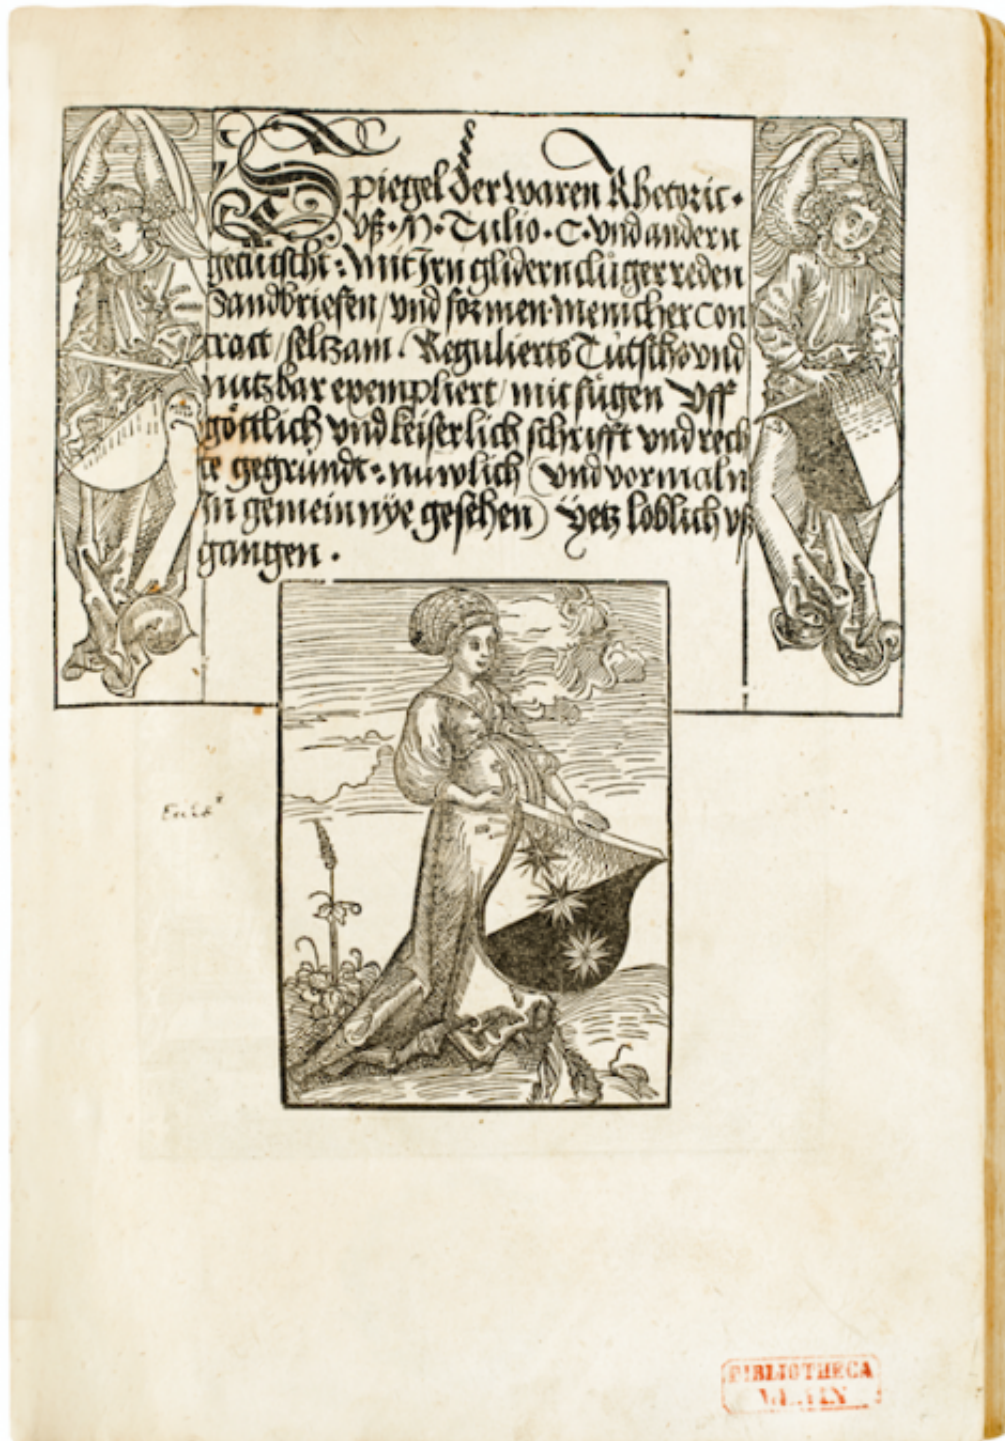 Spiegel der waren Rhetoric.
vß. M. Tulio. C. vnd andern
getütscht: Mit Irn glidern clůger reden
Sandbriefen / vnd formen. Menicher con
tract / seltzam. Regulierts Tütschs vnd
nutzbar exempliert / mit fügen vff
göttlich vnd keiserlich schrifft vnd rech
te gegründt: nuwlich (vnd vormaln
In gemein nye gesehen) yetz loblich vß
gangen.
BIBLIOTHECA